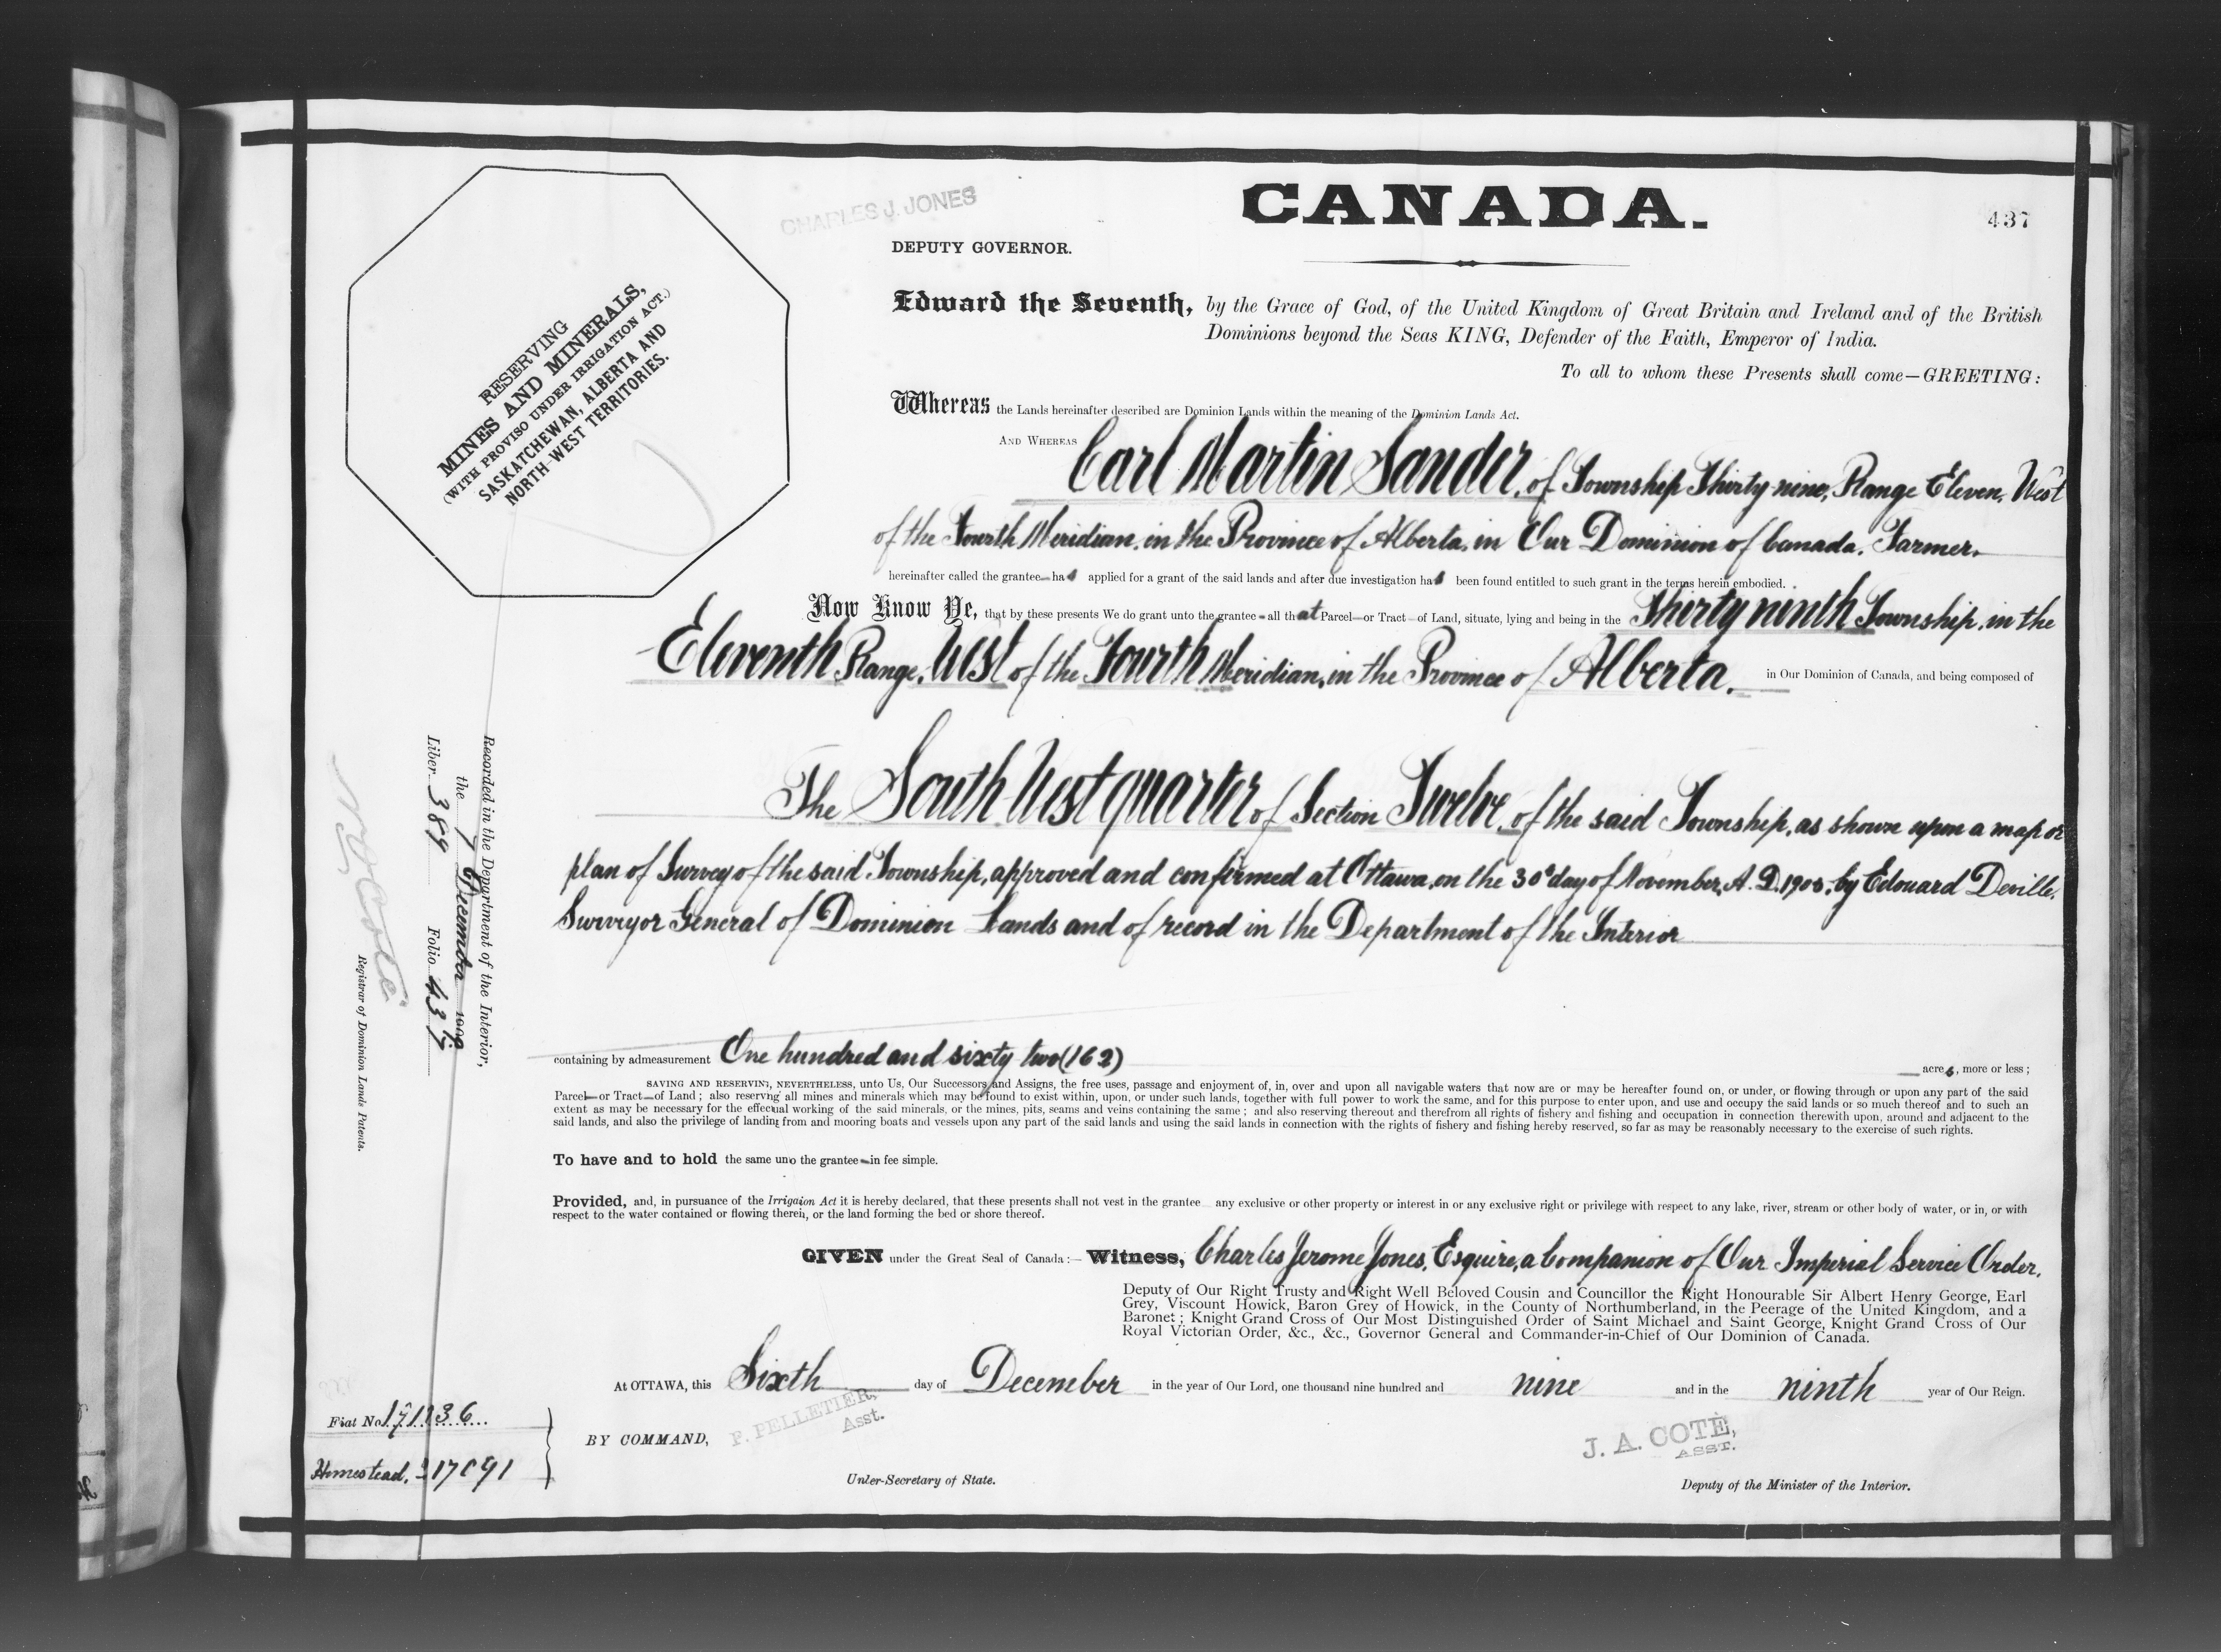 CHARLES J. JONES
CANADA.
437
DEPUTY GOVERNOR.
RESERVING
MINES AND MINERALS,
(WITH PROVISO UNDER IRRIGATION ACT.)
SASKATCHEWAN, ALBERTA AND
NORTH-WEST TERRITORIES.
Edward the Seventh, by the Grace of God, of the United Kingdom of Great Britain and Ireland and of the British
Dominions beyond the Seas KING, Defender of the Faith, Emperor of India.
To all to whom these Presents shall come—GREETING:
Whereas the Lands hereinafter described are Dominion Lands within the meaning of the Dominion Lands Act.
AND WHEREAS Carl Martin Sander, of Township Thirty-nine, Range Eleven, West
of the Fourth Meridian, in the Province of Alberta, in Our Dominion of Canada, Farmer.
hereinafter called the grantee has applied for a grant of the said lands and after due investigation has been found entitled to such grant in the terms herein embodied.
Now Know Ye, that by these presents We do grant unto the grantee all that Parcel or Tract of Land, situate, lying and being in the Thirty ninth Township, in the
Eleventh Range, West of the Fourth Meridian, in the Province of Alberta, in Our Dominion of Canada, and being composed of
The South West quarter of Section Twelve, of the said Township, as shown upon a map or
plan of Survey of the said Township, approved and confirmed at Ottawa, on the 30th day of November, A. D. by Edouard Deville,
Surveyor General of Dominion Lands and of record in the Department of the Interior
containing by admeasurement One hundred and sixty two (162) acres, more or less;
SAVING AND RESERVING, NEVERTHELESS, unto Us, Our Successors and Assigns, the free uses, passage and enjoyment of, in, over and upon all navigable waters that now are or may be hereafter found on, or under, or flowing through or upon any part of the said
Parcel or Tract of Land; also reserving all mines and minerals which may be found to exist within, upon, or under such lands, together with full power to work the same, and for this purpose to enter upon, and use and occupy the said lands or so much thereof and to such an
extent as may be necessary for the effectual working of the said minerals, or the mines, pits, seams and veins containing the same; and also reserving thereout and therefrom all rights of fishery and fishing and occupation in connection therewith upon, around and adjacent to the
said lands, and also the privilege of landing from and mooring boats and vessels upon any part of the said lands and using the said lands in connection with the rights of fishery and fishing hereby reserved, so far as may be reasonably necessary to the exercise of such rights.
To have and to hold the same unto the grantee in fee simple.
Provided, and, in pursuance of the Irrigation Act it is hereby declared, that these presents shall not vest in the grantee any exclusive or other property or interest in or any exclusive right or privilege with respect to any lake, river, stream or other body of water, or in, or with
respect to the water contained or flowing therein, or the land forming the bed or shore thereof.
GIVEN under the Great Seal of Canada:— Witness, Charles Jerome Jones, Esquire, a Companion of Our Imperial Service Order,
Deputy of Our Right Trusty and Right Well Beloved Cousin and Councillor the Right Honourable Sir Albert Henry George, Earl
Grey, Viscount Howick, Baron Grey of Howick, in the County of Northumberland, in the Peerage of the United Kingdom, and a
Baronet; Knight Grand Cross of Our Most Distinguished Order of Saint Michael and Saint George, Knight Grand Cross of Our
Royal Victorian Order, &c., &c., Governor General and Commander-in-Chief of Our Dominion of Canada.
At OTTAWA, this Sixth day of December in the year of Our Lord, one thousand nine hundred and nine and in the ninth year of Our Reign.
BY COMMAND,
F. PELLETIER,
Asst.
Under-Secretary of State.
J. A. COTÉ,
ASST.
Deputy of the Minister of the Interior.
Recorded in the Department of the Interior,
the 7 December 1909
Liber 389 Folio 437
N. O. Coté
Registrar of Dominion Lands Patents.
Fiat No 171136
Homestead.